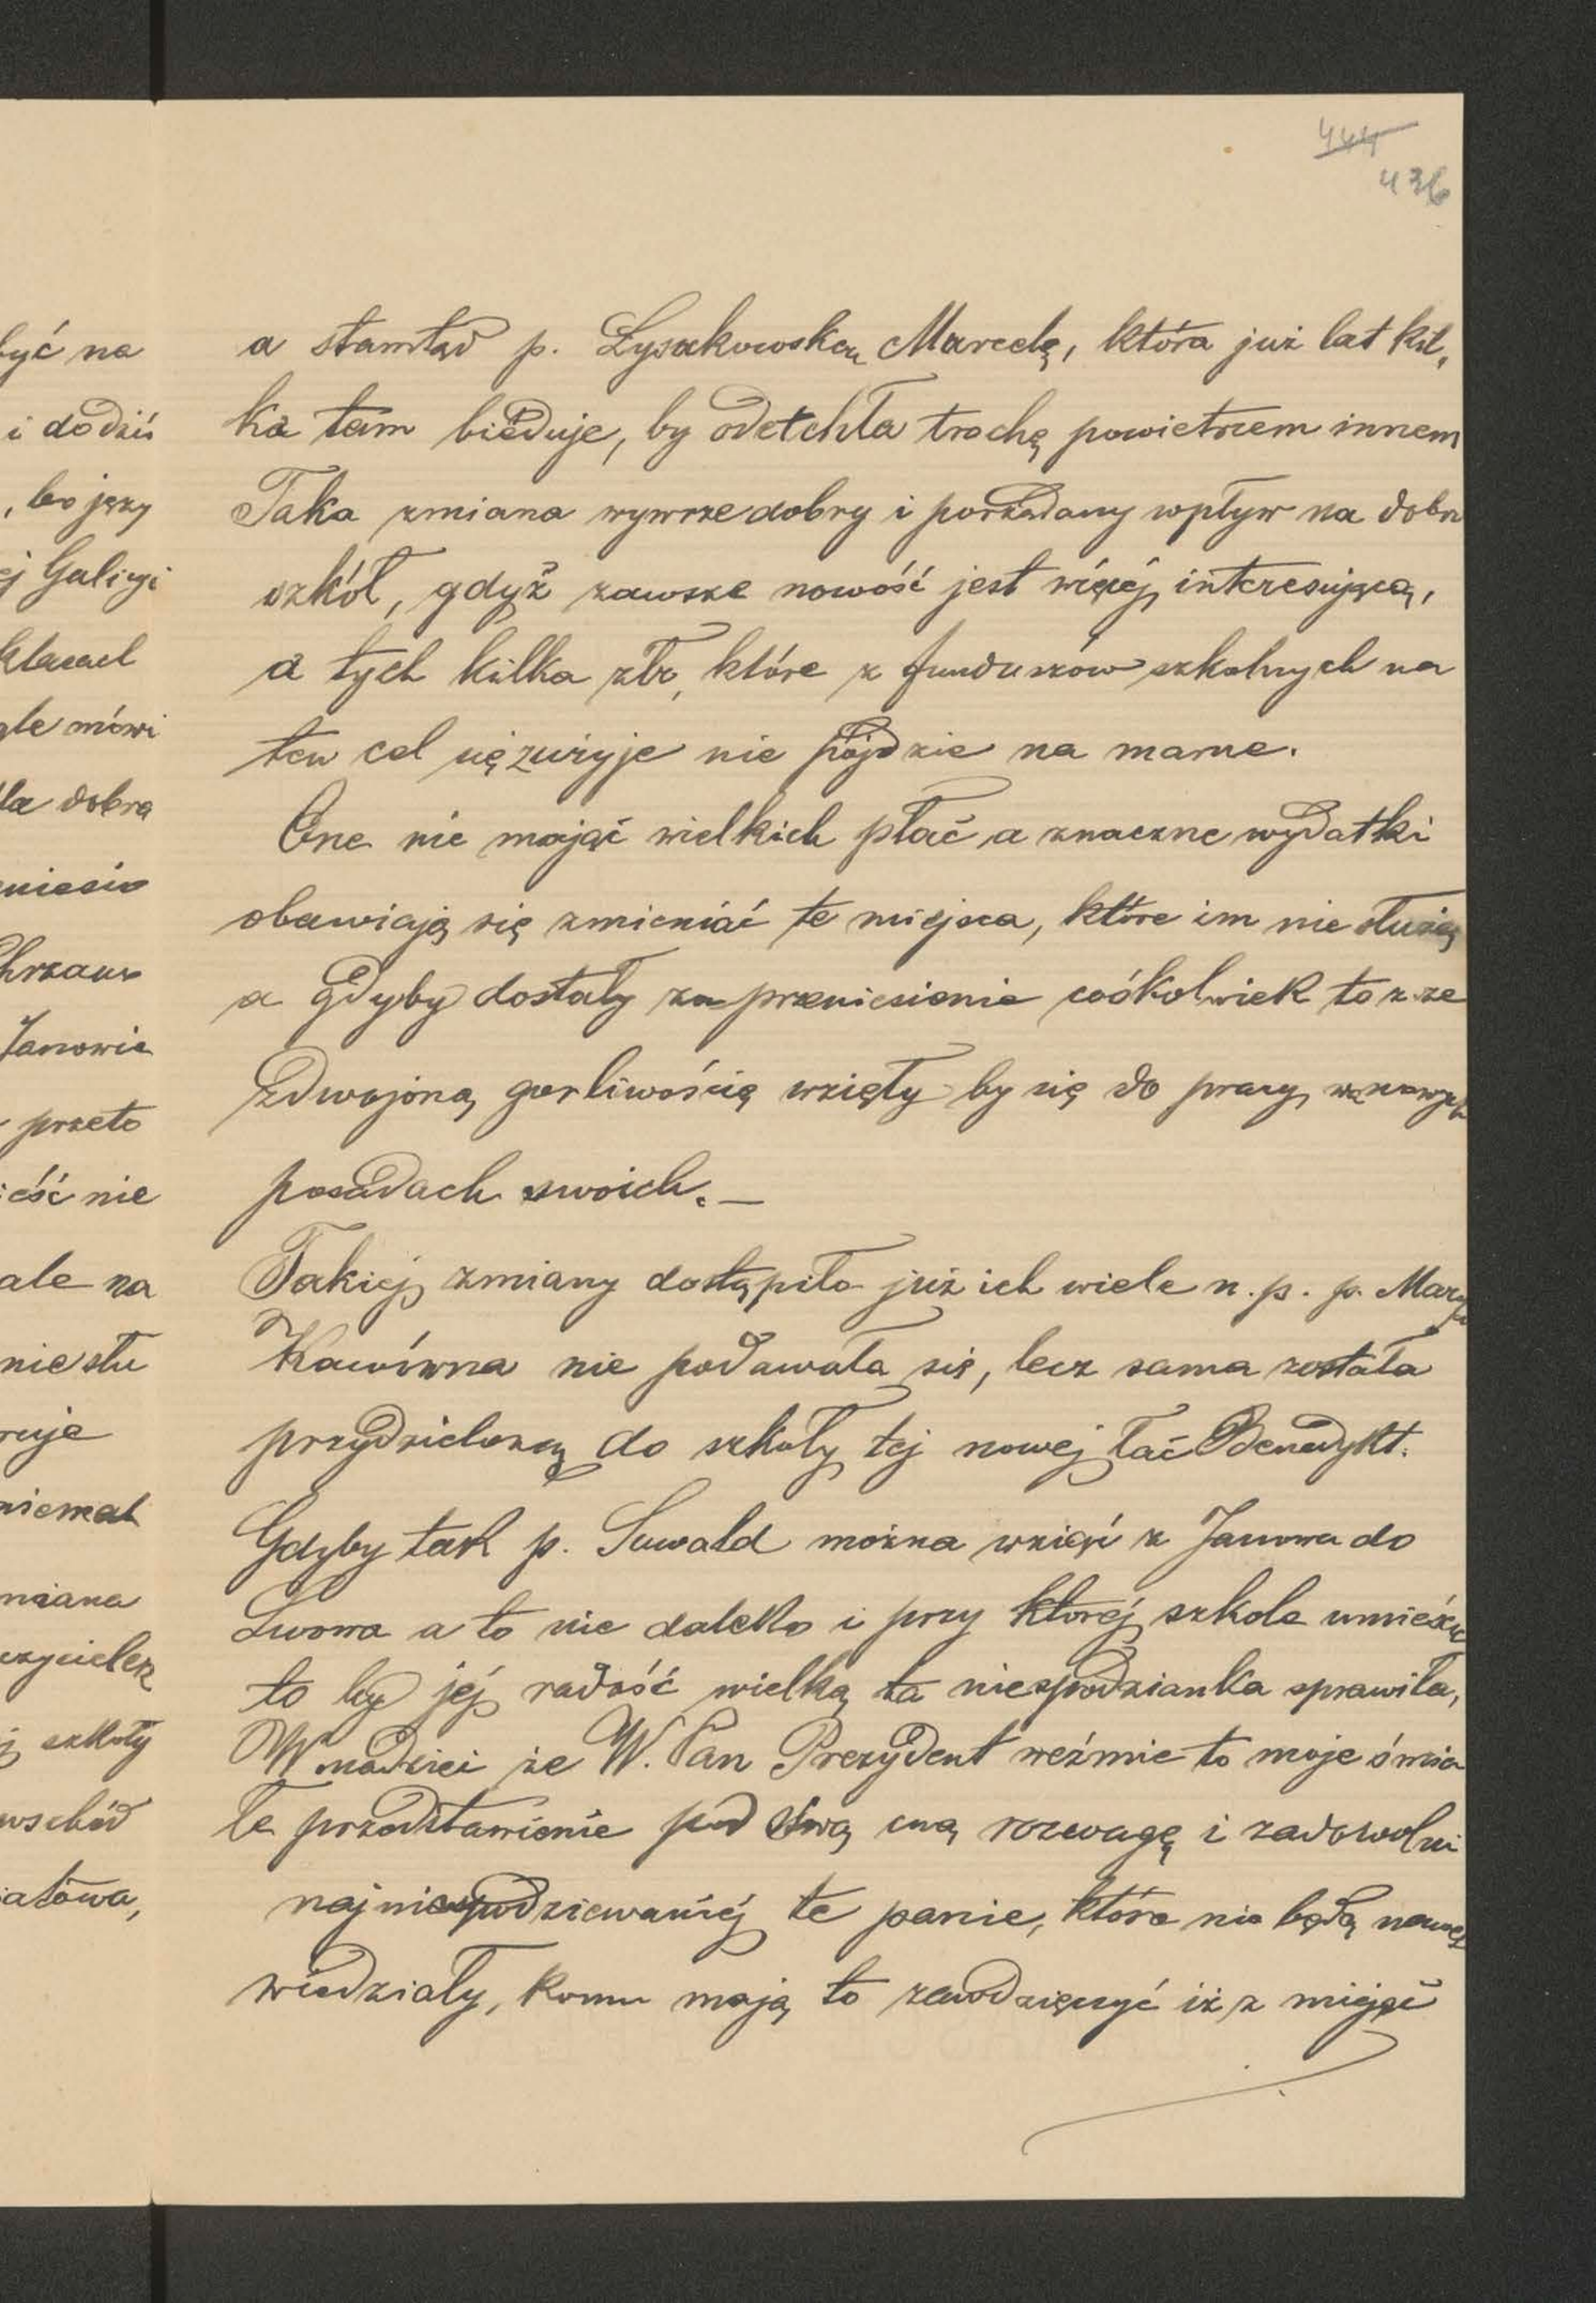 444
436
a stamtąd p. Łysakowską Marcelę, która już lat kil,
ka tam bieduje, by odetchła trochę powietrzem innem
Taka zmiana wywrze dobry i pożądany wpływ na dobro
szkół, gdyż zawsze nowość jest więcej interesującą,
a tych kilka złr, które z funduszów szkolnych na
ten cel się zużyje nie pójdzie na marne.
One nie mając wielkich płać a znaczne wydatki
obawiają się zmieniać te miejsca, które im nie służą
a gdyby dostały za przeniesienie cośkolwiek to z ze
zdwojoną gorliwością wzięły by się do pracy, na nowych
posadach swoich. —
Takiej zmiany dostąpiło już ich wiele n. p. p. Marya
nie podawała się, lecz sama została
przydzieloną do szkoły tej nowej łać Benedykt.
Gdyby tak p. Suwald można wziąść z Janowa do
Lwowa a to nie daleko i przy której szkole umieścić
to by jej radość wielką ta niespodzianka sprawiła,
W nadziei że W. Pan Prezydent weźmie to moje śmia
łe przedstawienie pod swą rozwagę i zadowolni
najniespodziewaniej te panie, które nie będą nawet
wiedziały, komu mają to zawdzięczyć iż z miejść
być na
i do dziś
, bo
ej Galicyi
mówi
dobra
Janowie
przeto
nie
ale na
nie słu
miana
szkoły
wschód